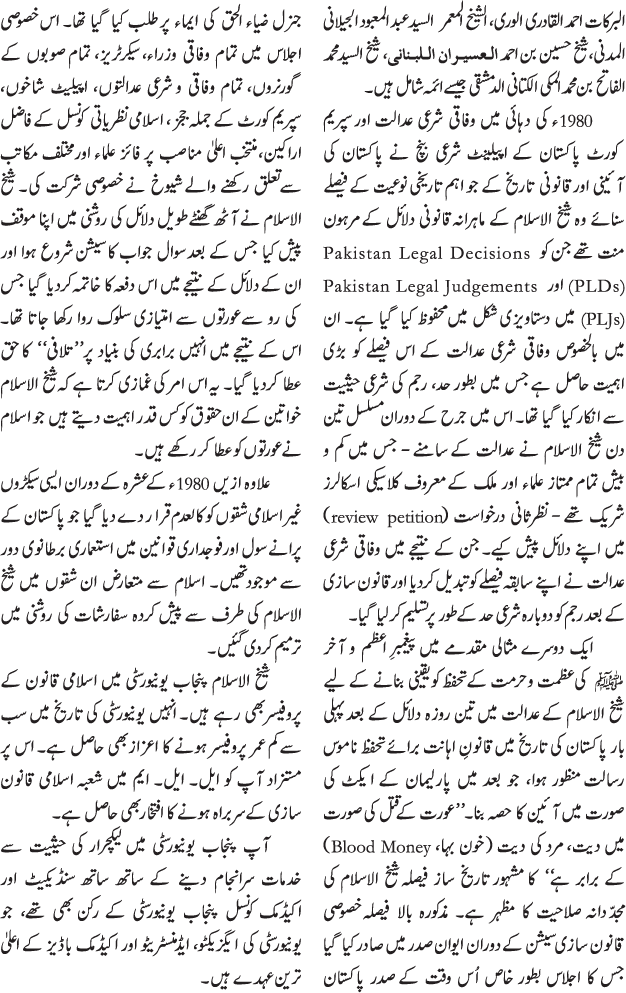 البرکات احمد القادری الوری، الشیخ المعمر السید عبد المعبود الجیلانی
المدنی، شیخ حسین بن احمد العسیران اللبنانی، شیخ السید محمد
الفاتح بن محمد المکی الکتانی الدمشقی جیسے ائمہ شامل ہیں۔
1980ء کی دہائی میں وفاقی شرعی عدالت اور سپریم
کورٹ پاکستان کے اپیلیٹ شرعی بنچ نے پاکستان کی
آئینی اور قانونی تاریخ کے جو اہم تاریخی نوعیت کے فیصلے
سنائے وہ شیخ الاسلام کے ماہرانہ قانونی دلائل کے مرہون
منت تھے جن کو Pakistan Legal Decisions
(PLDs) اور Pakistan Legal Judgements
(PLJs) میں دستاویزی شکل میں محفوظ کیا گیا ہے۔ ان
میں بالخصوص وفاقی شرعی عدالت کے اس فیصلے کو بڑی
اہمیت حاصل ہے جس میں بطور حد، رجم کی شرعی حیثیت
سے انکار کیا گیا تھا۔ اس میں جرح کے دوران مسلسل تین
دن شیخ الاسلام نے عدالت کے سامنے - جس میں کم و
بیش تمام ممتاز علماء اور ملک کے معروف کلاسیکی اسکالرز
شریک تھے - نظر ثانی درخواست (review petition)
میں اپنے دلائل پیش کیے۔ جن کے نتیجے میں وفاقی شرعی
عدالت نے اپنے سابقہ فیصلے کو تبدیل کر دیا اور قانون سازی
کے بعد رجم کو دوبارہ شرعی حد کے طور پر تسلیم کر لیا گیا۔
ایک دوسرے مثالی مقدمے میں پیغمبرِ اعظم و آخر
ﷺ کی عظمت و حرمت کے تحفظ کو یقینی بنانے کے لیے
شیخ الاسلام کے عدالت میں تین روزہ دلائل کے بعد پہلی
بار پاکستان کی تاریخ میں قانونِ اہانت برائے تحفظ ناموس
رسالت منظور ہوا، جو بعد میں پارلیمان کے ایکٹ کی
صورت میں آئین کا حصہ بنا۔ ’’عورت کے قتل کی صورت
میں دیت، مرد کی دیت (خون بہا، Blood Money)
کے برابر ہے‘‘ کا مشہور تاریخ ساز فیصلہ شیخ الاسلام کی
مجدّدانہ صلاحیت کا مظہر ہے۔ مذکورہ بالا فیصلہ خصوصی
قانون سازی سیشن کے دوران ایوان صدر میں صادر کیا گیا
جس کا اجلاس بطور خاص اُس وقت کے صدر پاکستان
جنرل ضیاء الحق کی ایماء پر طلب کیا گیا تھا۔ اس خصوصی
اجلاس میں تمام وفاقی وزراء، سیکرٹریز، تمام صوبوں کے
گورنروں، تمام وفاقی و شرعی عدالتوں، اپیلیٹ شاخوں،
سپریم کورٹ کے جملہ ججز، اسلامی نظریاتی کونسل کے فاضل
اراکین، منتخب اعلیٰ مناصب پر فائز علماء اور مختلف مکاتب
سے تعلق رکھنے والے شیوخ نے خصوصی شرکت کی۔ شیخ
الاسلام نے آٹھ گھنٹے طویل دلائل کی روشنی میں اپنا موقف
پیش کیا جس کے بعد سوال جواب کا سیشن شروع ہوا اور
ان کے دلائل کے نتیجے میں اس دفعہ کا خاتمہ کر دیا گیا جس
کی رو سے عورتوں سے امتیازی سلوک روا رکھا جاتا تھا۔
اس کے نتیجے میں انہیں برابری کی بنیاد پر ’’تلافی‘‘ کا حق
عطا کر دیا گیا۔ یہ اس امر کی غمازی کرتا ہے کہ شیخ الاسلام
خواتین کے ان حقوق کو کس قدر اہمیت دیتے ہیں جو اسلام
نے عورتوں کو عطا کر رکھے ہیں۔
علاوہ ازیں 1980ء کے عشرہ کے دوران ایسی سیکڑوں
غیر اسلامی شقوں کو کالعدم قرار دے دیا گیا جو پاکستان کے
پرانے سول اور فوجداری قوانین میں استعماری برطانوی دور
سے موجود تھیں۔ اسلام سے متعارض ان شقوں میں شیخ
الاسلام کی طرف سے پیش کردہ سفارشات کی روشنی میں
ترمیم کر دی گئیں۔
شیخ الاسلام پنجاب یونیورسٹی میں اسلامی قانون کے
پروفیسر بھی رہے ہیں۔ انہیں یونیورسٹی کی تاریخ میں سب
سے کم عمر پروفیسر ہونے کا اعزاز بھی حاصل ہے۔ اس پر
مستزاد آپ کو ایل۔ ایل۔ ایم میں شعبہ اسلامی قانون
سازی کے سربراہ ہونے کا افتخار بھی حاصل ہے۔
آپ پنجاب یونیورسٹی میں لیکچرار کی حیثیت سے
خدمات سرانجام دینے کے ساتھ ساتھ سنڈیکیٹ اور
اکیڈمک کونسل پنجاب یونیورسٹی کے رکن بھی تھے، جو
یونیورسٹی کی ایگزیکٹو، ایڈمنسٹریٹو اور اکیڈمک باڈیز کے اعلیٰ
ترین عہدے ہیں۔